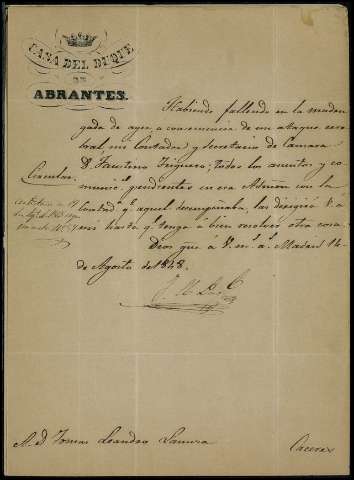 CASA DEL DUQUE
DE
ABRANTES.
Habiendo fallecido en la madru-
gada de ayer a consecuencia de un ataque cere-
bral, mi Contador y Secretario de Camara
D. Faustino todos los asuntos y co-
Circular.
pendientes en esa Admon con la
que aquel desempeñaba, las dirigirá V. a
mi hasta qe. tenga á bien resolver otra cosa.
Dios gue á V. ms. as. Madrid 14
de Agosto de 1848.
A D. Tomas Leandro
Caceres